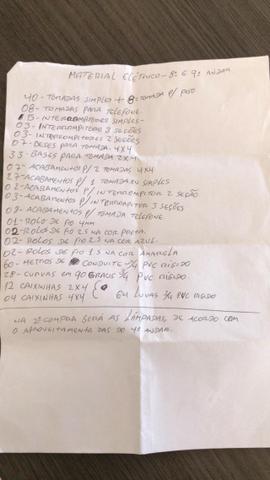 MATERIAL ELÉTRICO - 8º E 9º ANDAR
40 - TOMADAS SIMPLES + 8 = TOMADA P/ PISO
08 - TOMADAS PARA TELEFONE
15 - INTERRUPTORES SIMPLES -
03 - INTERRUPTORES 3 SEÇÕES
03 - INTERRUPTORES 2 SEÇÕES
07 - BASES PARA TOMADA 4X4
33 - BASES PARA TOMADA 2X4
07 - ACABAMENTOS P/ 2 TOMADAS 4X4
27 - ACABAMENTOS P/ 1 TOMADA SIMPLES
02 - ACABAMENTOS P/ INTERRUPTOR 2 SEÇÃO
03 - ACABAMENTOS P/ INTERRUPTOR 3 SEÇÕES
08 - ACABAMENTOS P/ TOMADA TELEFONE
01 - ROLO DE FIO 4MM
02 ROLOS DE FIO 2.5 NA COR PRETA.
02 - ROLOS DE FIO 2.5 NA COR AZUL.
02 - ROLOS DE FIO 1.5 NA COR AMARELA
60 - METROS DE CONDUITE 3/4 PVC RÍGIDO
28 - CURVAS EM 90 GRAUS 3/4 PVC RÍGIDO
12 CAIXINHAS 2X4
04 CAIXINHAS 4X4 { 64 LUVAS 3/4 PVC RÍGIDO
NA 2ª COMPRA SERÁ AS LÂMPADAS, DE ACORDO COM
O APROVEITAMENTO DAS DO 4º ANDAR.